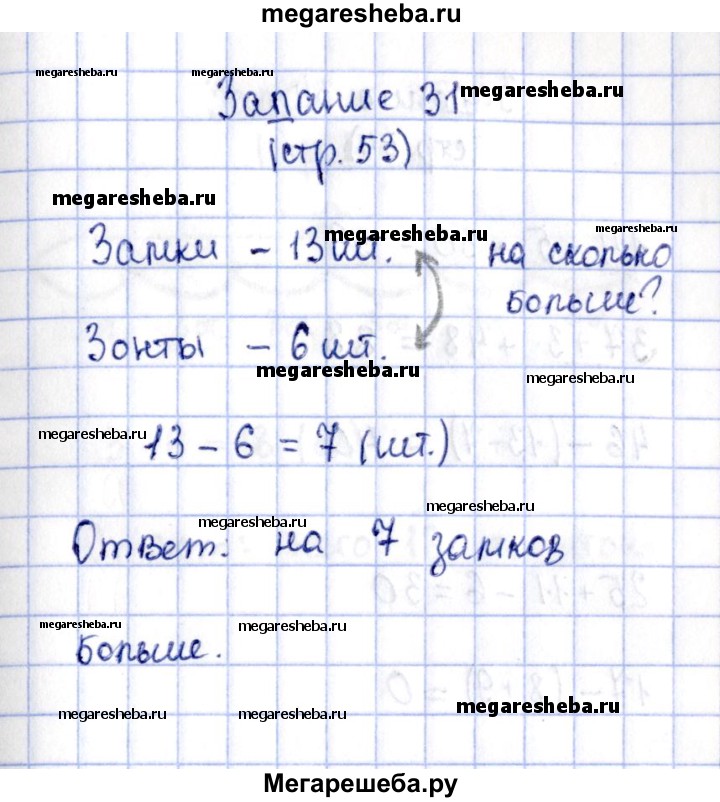 megaresheba.ru
megaresheba.ru megaresheba.ru
Задание 31 megaresheba.ru
(стр. 53)
megaresheba.ru
megaresheba.ru
Замки – 13 шт. megaresheba.ru на сколько
больше?
Зонты – 6 шт.
megaresheba.ru megaresheba.ru
megaresheba.ru 13 – 6 = 7 (шт.)
megaresheba.ru megaresheba.ru
Ответ: на 7 замков
megaresheba.ru megaresheba.ru
больше.
megaresheba.ru megaresheba.ru megaresheba.ru
Мегарешеба.ру